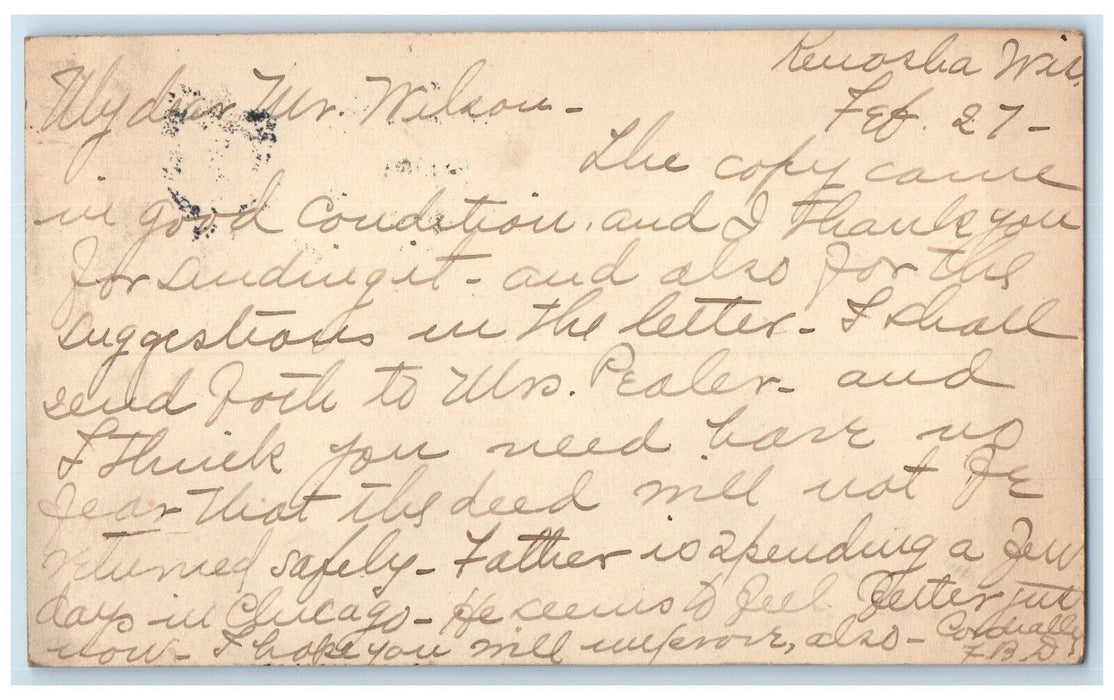 Kenosha Wis,
Feb. 27-
My dear Mr. Wilson-
The copy came
in good condition. and I thank you
for sending it - and also for the
suggestions in the letter - I shall
send both to Mrs. Pealer - and
I think you need have no
fear that the deed will not be
returned safely - Father is spending a few
days in Chicago - He seems to feel better just
now - I hope you will improve, also -
Cordially
F. B. D